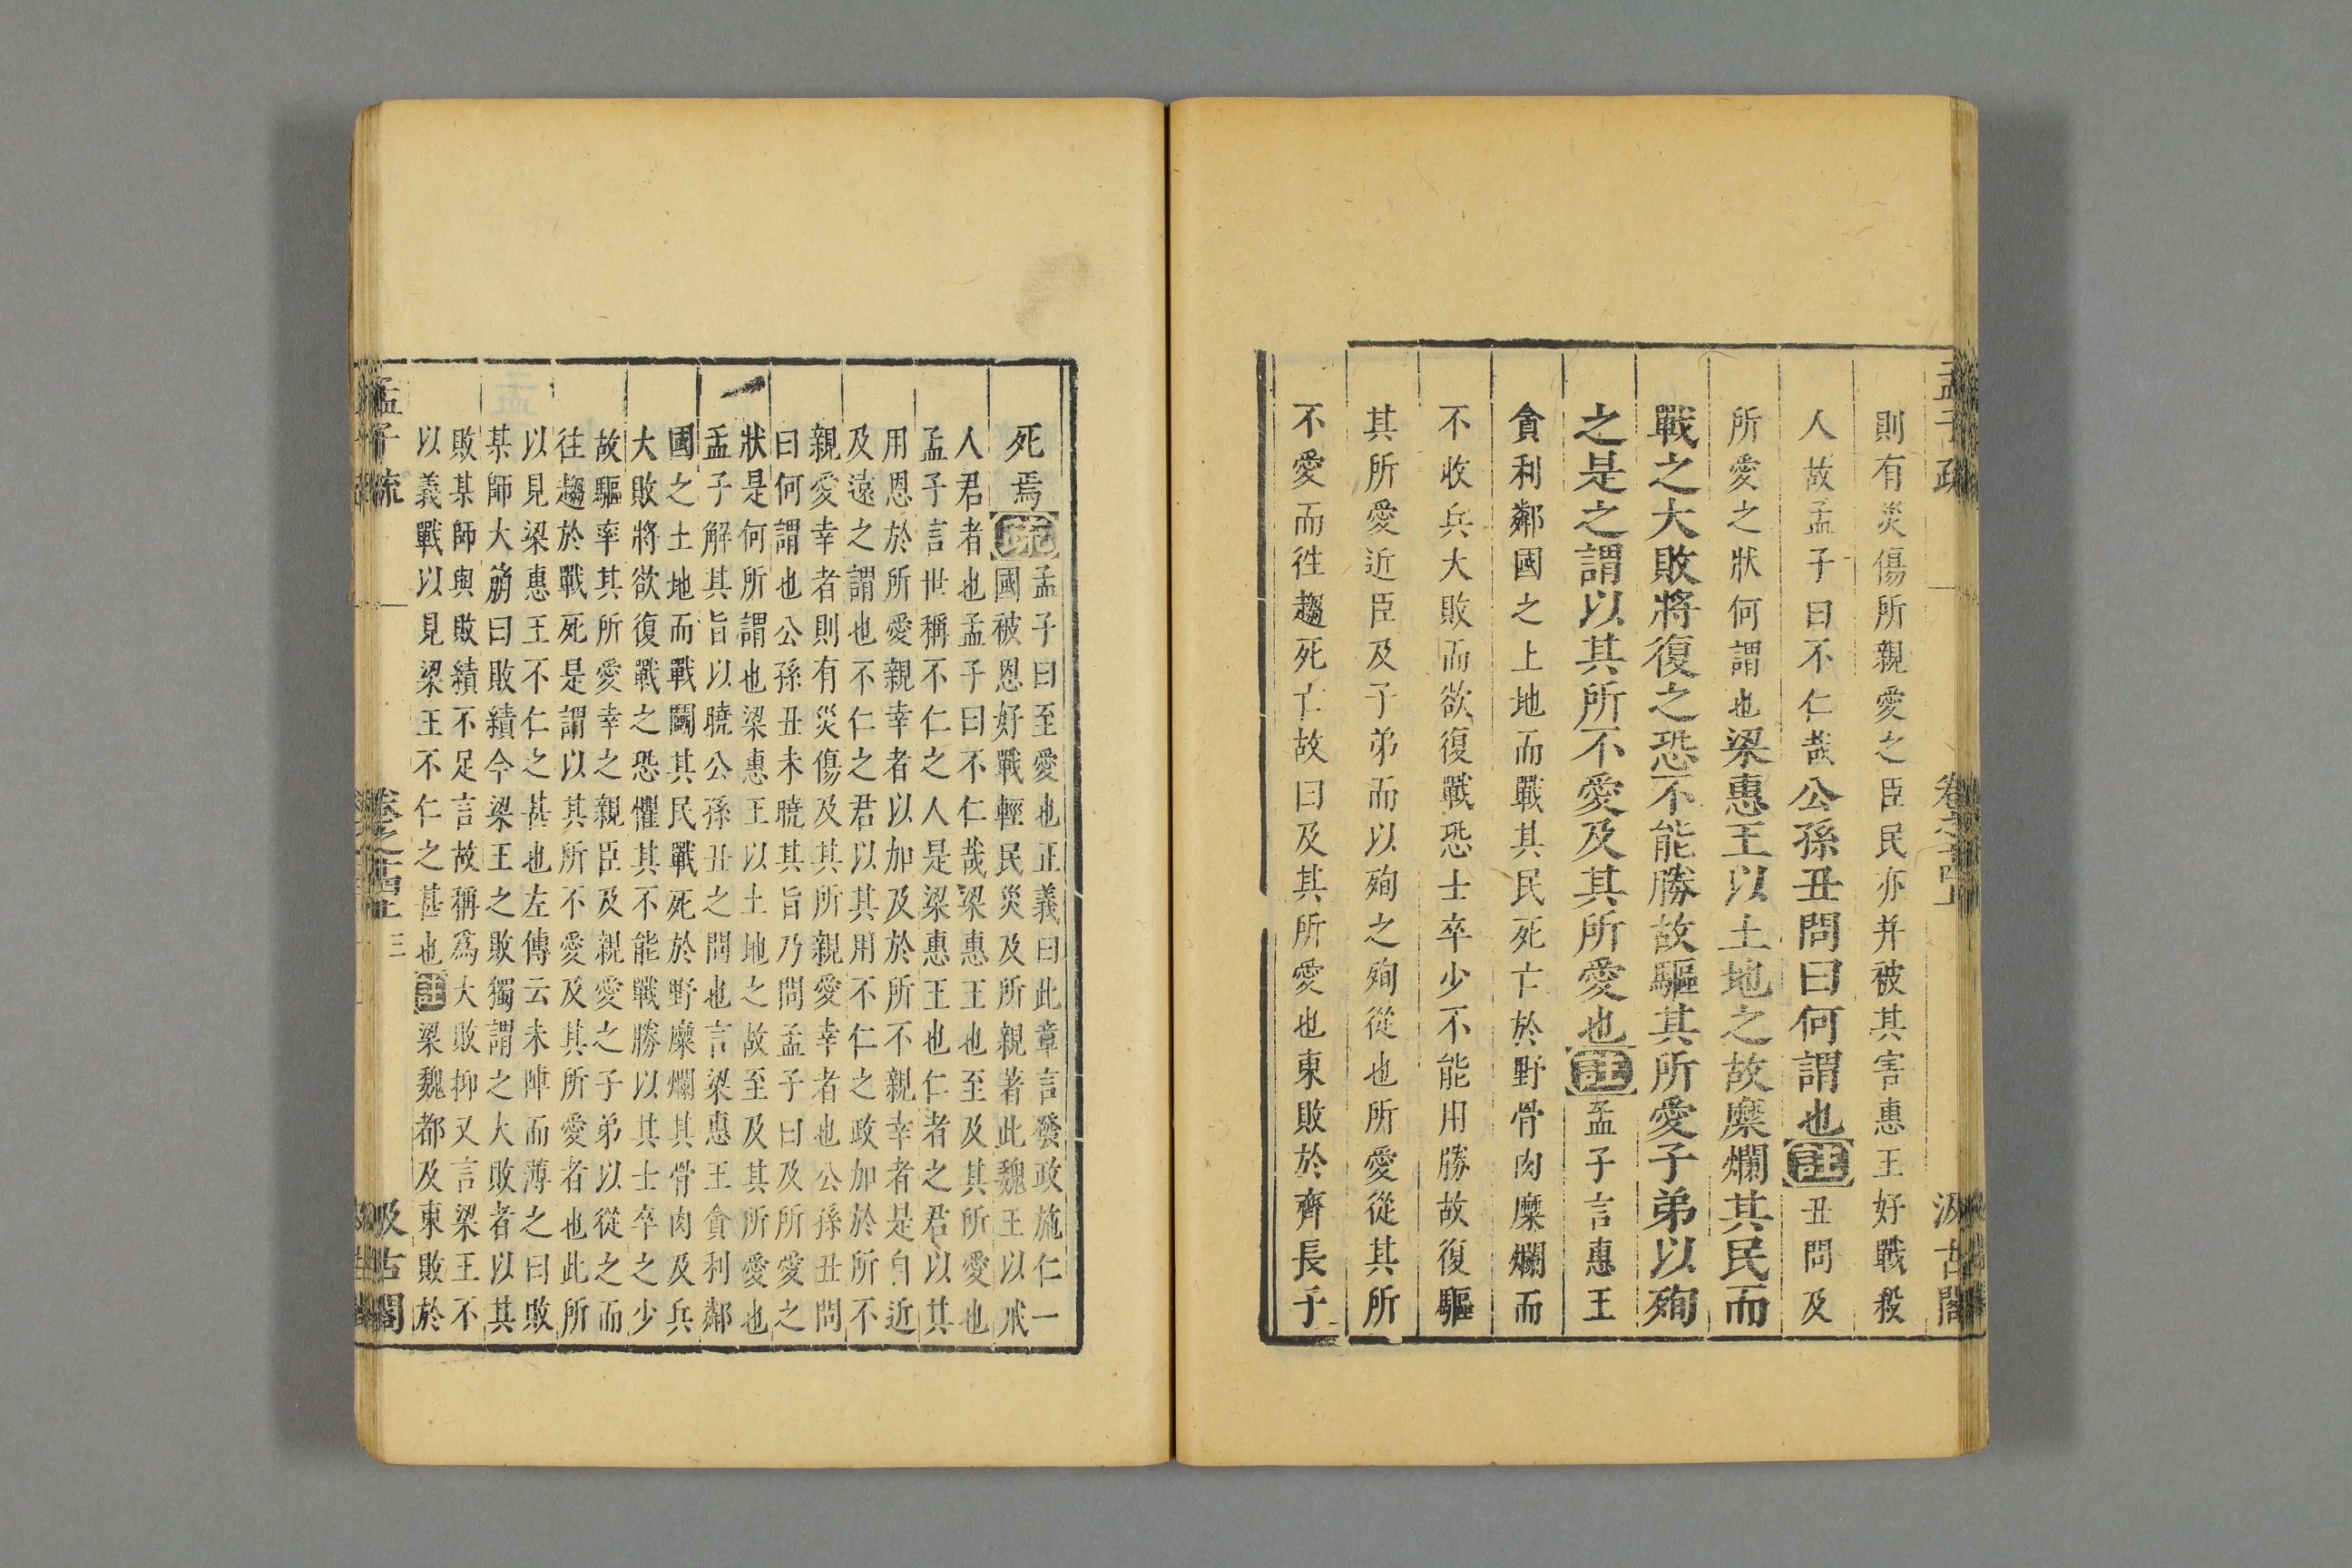 孟子疏 卷之十四上 汲古閣
則有災傷所親愛之臣民亦并被其害惠王好戰殺
人故孟子曰不仁哉公孫丑問曰何謂也註丑問及
所愛之狀何謂也梁惠王以土地之故糜爛其民而
戰之大敗將復之恐不能勝故驅其所愛子弟以殉
之是之謂以其所不愛及其所愛也註孟子言惠王
貪利鄰國之土地而戰其民死亡於野骨肉糜爛而
不收兵大敗而欲復戰恐士卒少不能用勝故復驅
其所愛近臣及子弟而以殉之殉從也所愛從其所
不愛而往趨死亡故曰及其所愛也東敗於齊長子
死焉疏
孟子曰至愛也正義曰此章言發政施仁一
國被恩好戰輕民災及所親著此魏王以戒
人君者也孟子曰不仁哉梁惠王也至及其所愛也
孟子言世稱不仁之人是梁惠王也仁者之君以其
用恩於所愛親幸者以加及於所不親幸者是自近
及遠之謂也不仁之君以其用不仁之政加於所不
親愛幸者則有災傷及其所親愛幸者也公孫丑問
曰何謂也公孫丑未曉其旨乃問孟子曰及所愛之
狀是何所謂也梁惠王以土地之故至及其所愛也
孟子解其旨以曉公孫丑之問也言梁惠王貪利鄰
國之土地而戰鬭其民戰死於野糜爛其骨肉及兵
大敗將欲復戰之恐懼其不能戰勝以其士卒之少
故驅率其所愛幸之親臣及親愛之子弟以從之而
往趨於戰死是謂以其所不愛及其所愛者也此所
以見梁惠王不仁之甚也左傳云未陣而薄之曰敗
某師大崩曰敗績今梁王之敗獨謂之大敗者以其
敗某師與敗績不足言故稱爲大敗抑又言梁王不
以義戰以見梁王不仁之甚也註梁魏都及東敗於
孟子疏 卷之十四上 三 汲古閣